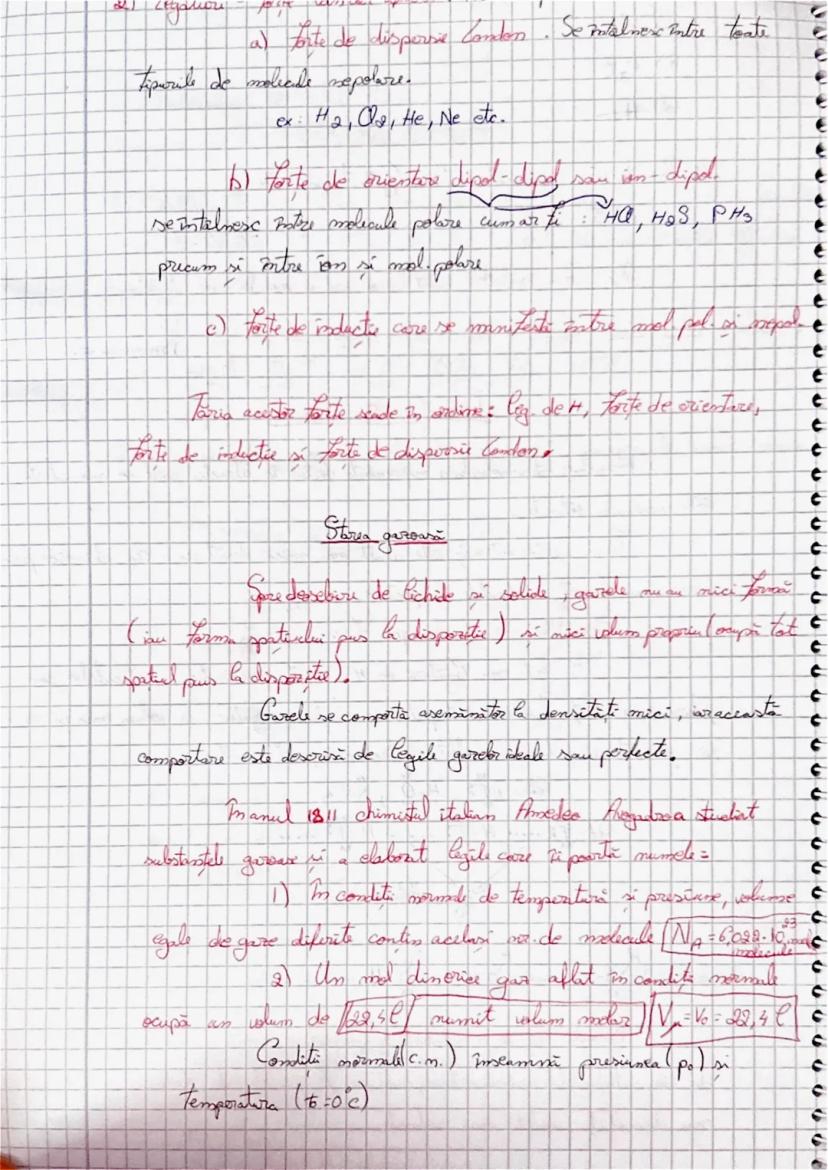 a) Forțe de dispersie London. Se întâlnesc între toate
tipurile de molecule nepolare.
ex: H2, Cl2, He, Ne etc.
b) Forțe de orientare dipol-dipol sau ion-dipol.
se întâlnesc între molecule polare cum ar fi : HCl, H2S, PH3
precum și între ion și mol. polare
c) Forțe de inducție care se manifestă între mol. pol. și nepol.
Tăria acestor forțe scade în ordine: leg. de H, Forțe de orientare,
Forțe de inducție și Forțe de dispersie London.
Starea gazoasă
Spre deosebire de lichide și solide, gazele nu au nici formă
(iau forma spațiului pus la dispoziție) și nici volum propriu (ocupă tot
spațiul pus la dispoziție).
Gazele se comportă asemănător la densități mici, iar această
comportare este descrisă de legile gazelor ideale sau perfecte.
În anul 1811 chimistul italian Amedeo Avogadro a studiat
substanțele gazoase și a elaborat legile care îi poartă numele:
1) În condiții normale de temperatură și presiune, volume
egale de gaze diferite conțin același nr. de molecule NA = 6,022·10^23 molecule
2) Un mol din orice gaz aflat în condiții normale
ocupă un volum de 22,4 l numit volum molar Vμ = V0 = 22,4 l
Condiții normale (c.n.) înseamnă presiunea (p0) și
temperatura (t=0°C)